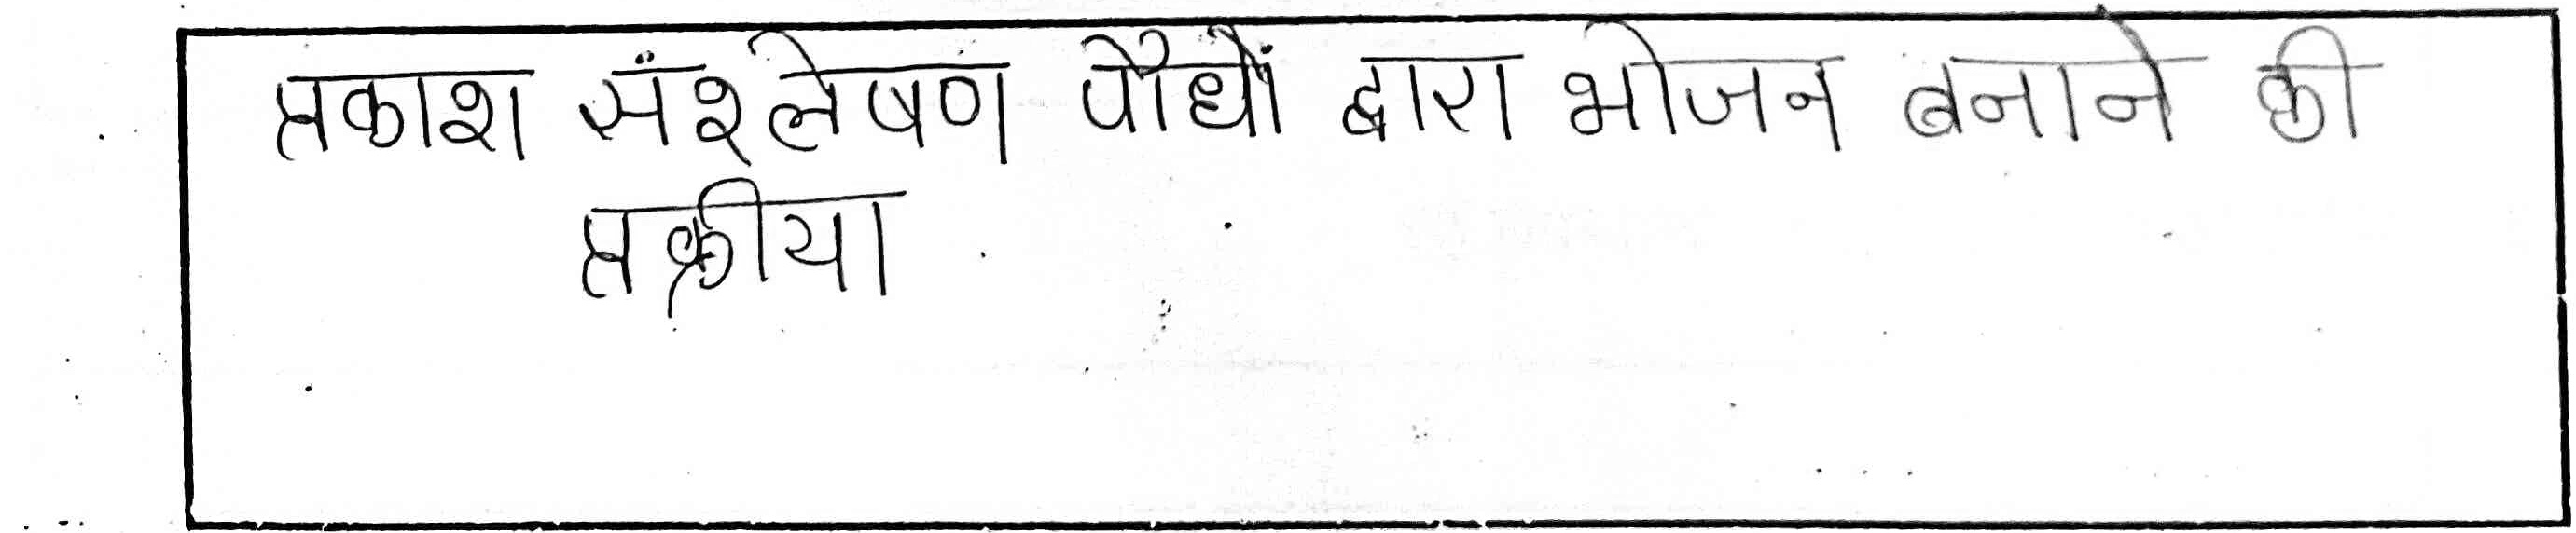 प्रकाश संश्लेषण पौधों द्वारा भोजन बनाने की
प्रक्रीया